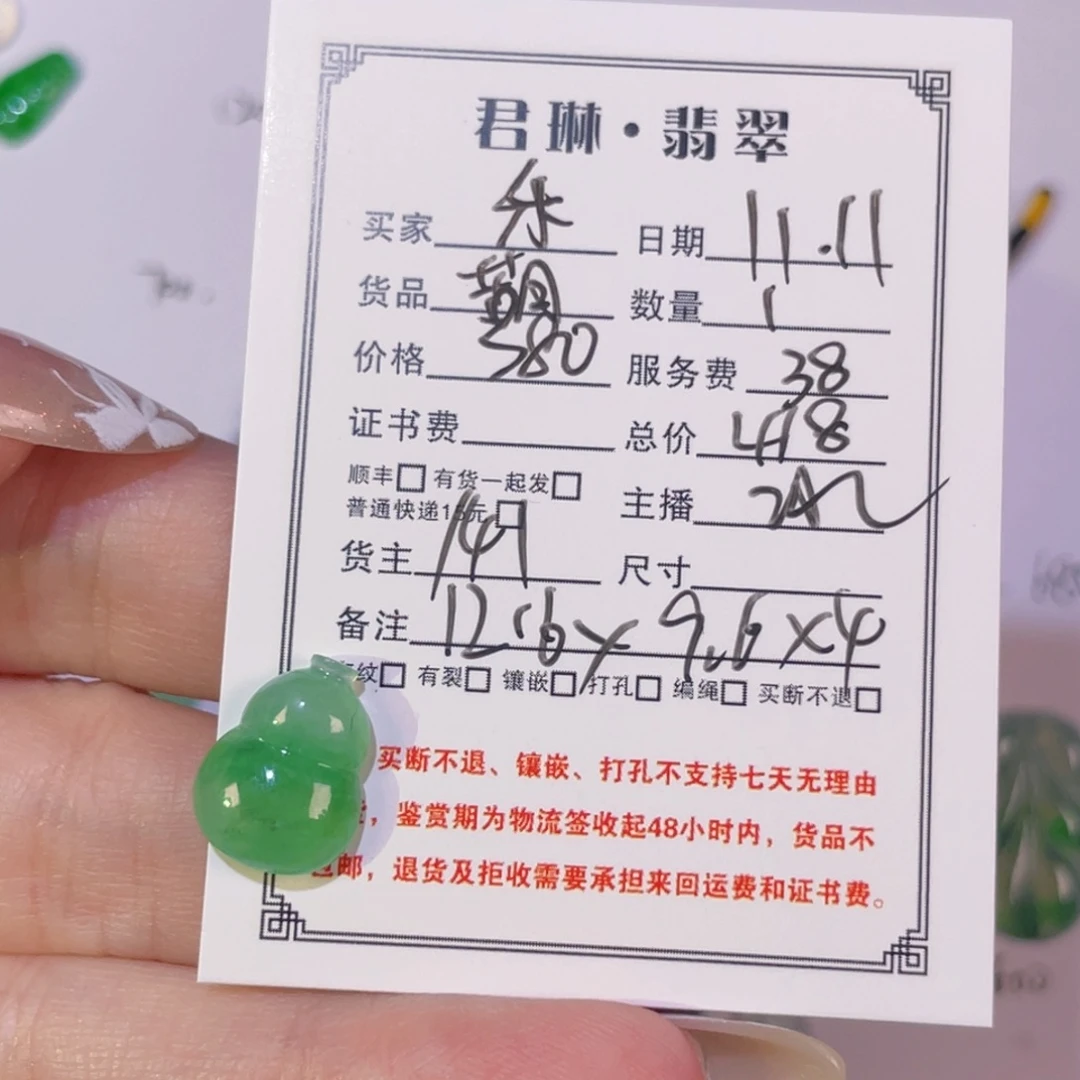 君琳·翡翠
买家 朱 日期 11.11
货品 葫 数量 1
价格 380 服务费 38
证书费 总价 418
顺丰 有货一起发
普通快递15元 主播
货主 141 尺寸
备注 12.6×9.6×4
纹 有裂 镶嵌 打孔 编绳 买断不退
买断不退、镶嵌、打孔不支持七天无理由
，鉴赏期为物流签收起48小时内，货品不
包邮，退货及拒收需要承担来回运费和证书费。